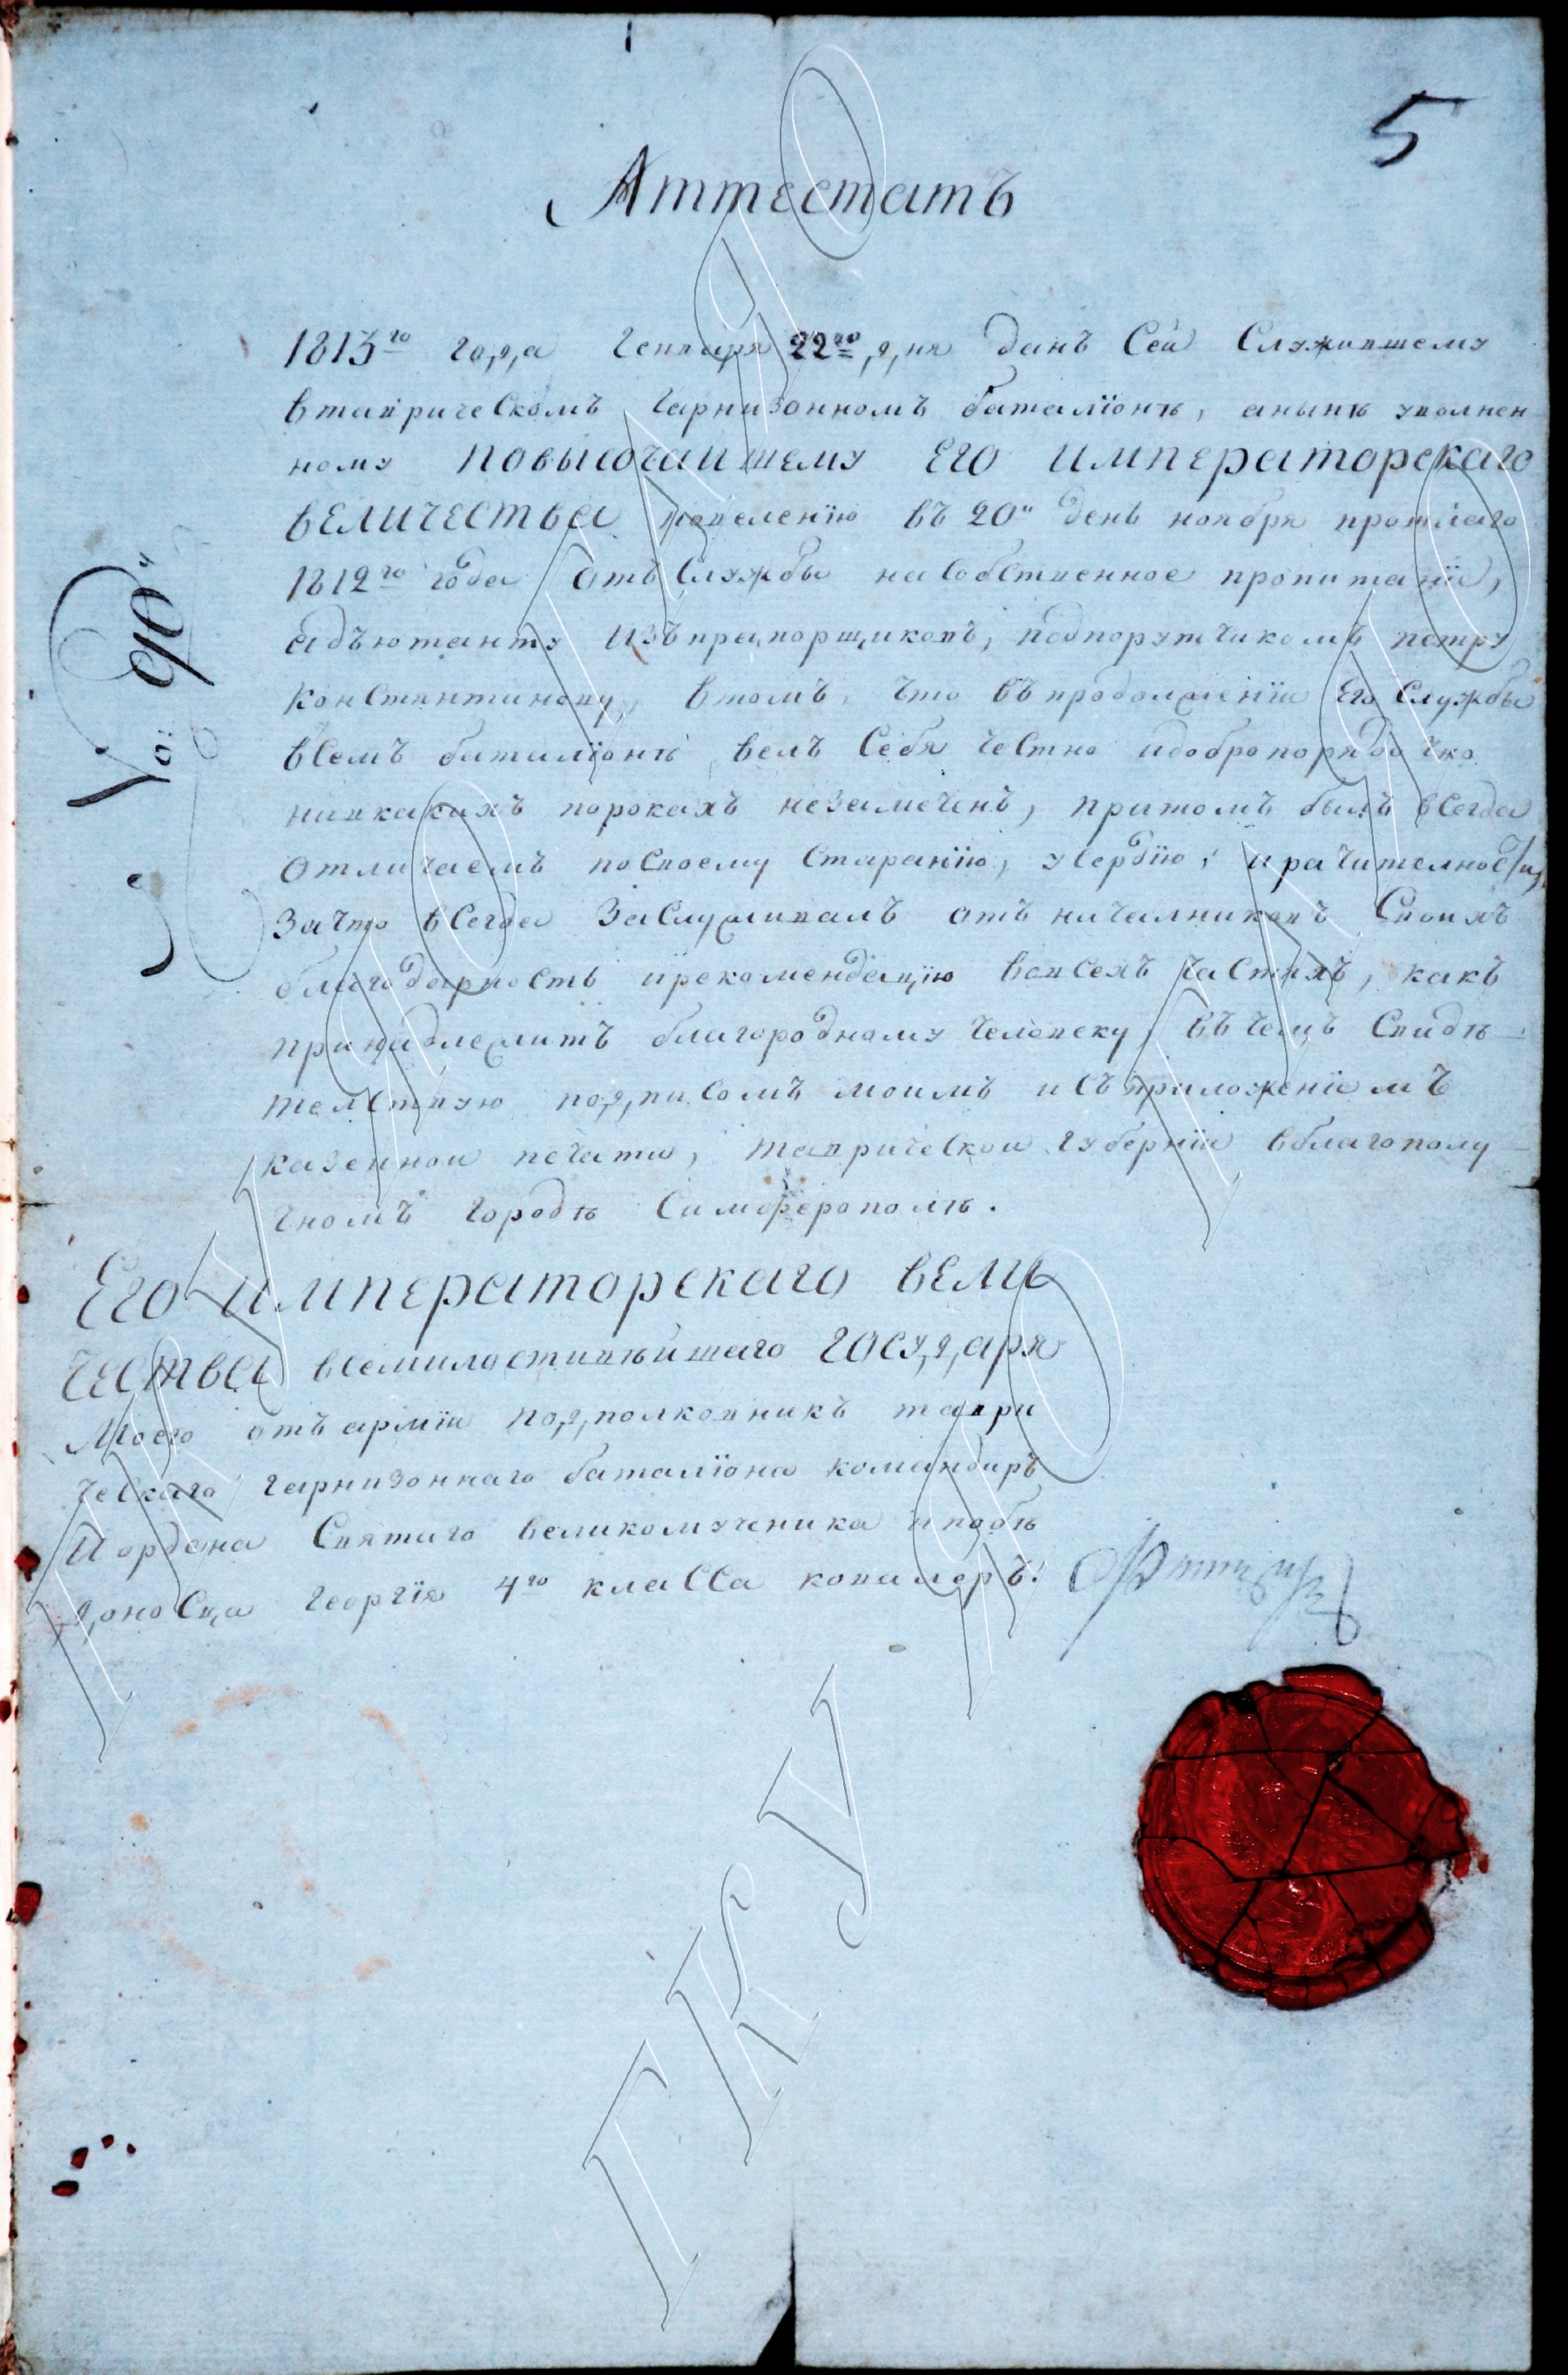 5
Аттестатъ
1813го года Генваря 22го дня данъ Сей Служившему
втаврическомъ гарнизонномъ баталіонѣ, анынѣ уволнен
ному повысочайшему Его императорскаго
величества повеленію въ 20й день ноября прошлаго
1812го года отъ Службы насобственное пропитаніе,
адъютанту изъ прапорщиковъ, подпорутчикомъ петру
константинову, втомъ, что въ продолженіи Его Службы
всемъ баталіонѣ велъ Себя честно идобропорядочно
нивкакихъ порокахъ незамеченъ, притомъ былъ всегда
отличаемъ посвоему Старанію, усердію, и рачителност/и,
зачто всегда Заслуживалъ отъ началниковъ Своихъ
благодарность ирекомендацію вовсехъ частяхъ, какъ
принадлежитъ благородному человеку, въ чемъ Свидѣ
телствую подписомъ моимъ исъ приложеніемъ
казенной печати, таврической губерніи вблагополу
чномъ городѣ Симферополѣ.
Его императорскаго вели
чества всемилостивѣйшаго государя
Моего отъ арміи подполковникъ таври
ческаго гарнизоннаго баталіона командиръ
И ордена Святаго великомученика ипобѣ
доносца георгія 4го класса кавалеръ:
No: 90й
ГКУ